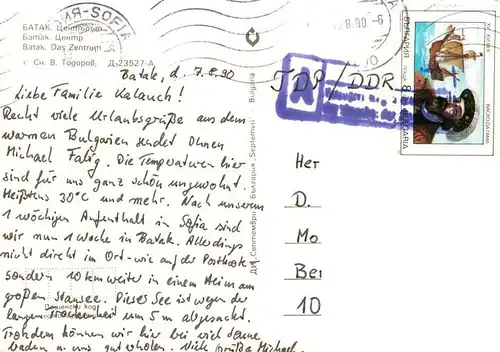 БАТАК. Центърът
Батак. Центр
Batak. Das Zentrum
Сн. В. Тодоров, Д-23527-А
Batak, d. 7.8.90
Liebe Familie Kalauch!
Recht viele Urlaubsgrüße aus dem
warmen Bulgarien sendet Ihnen
Michael Falig. Die Temperaturen hier
sind für uns ganz schön ungewohnt.
Meistens 30°C und mehr. Nach unserem
1 wöchigen Aufenthalt in Sofia sind
wir nun 1 Woche in Batak. Allerdings
nicht direkt im Ort - wie auf der Postkarte
sondern 10 km weiter in einem Heim am
großen Stausee. Dieser See ist wegen der
langen Trockenheit um 5 m abgesackt.
Trotzdem können wir hier bei viel Sonne
baden u. uns gut erholen. Viele Grüße Michael.
Пощенски код
ДИ „Септември" България „Septemvri" Bulgaria
SOFIA
8.90-6
TDP/DDR
БЪЛГАРИЯ
BULGARIA
ВАСКО ДА ГАМА
Her
D.
Mo
Ber
10